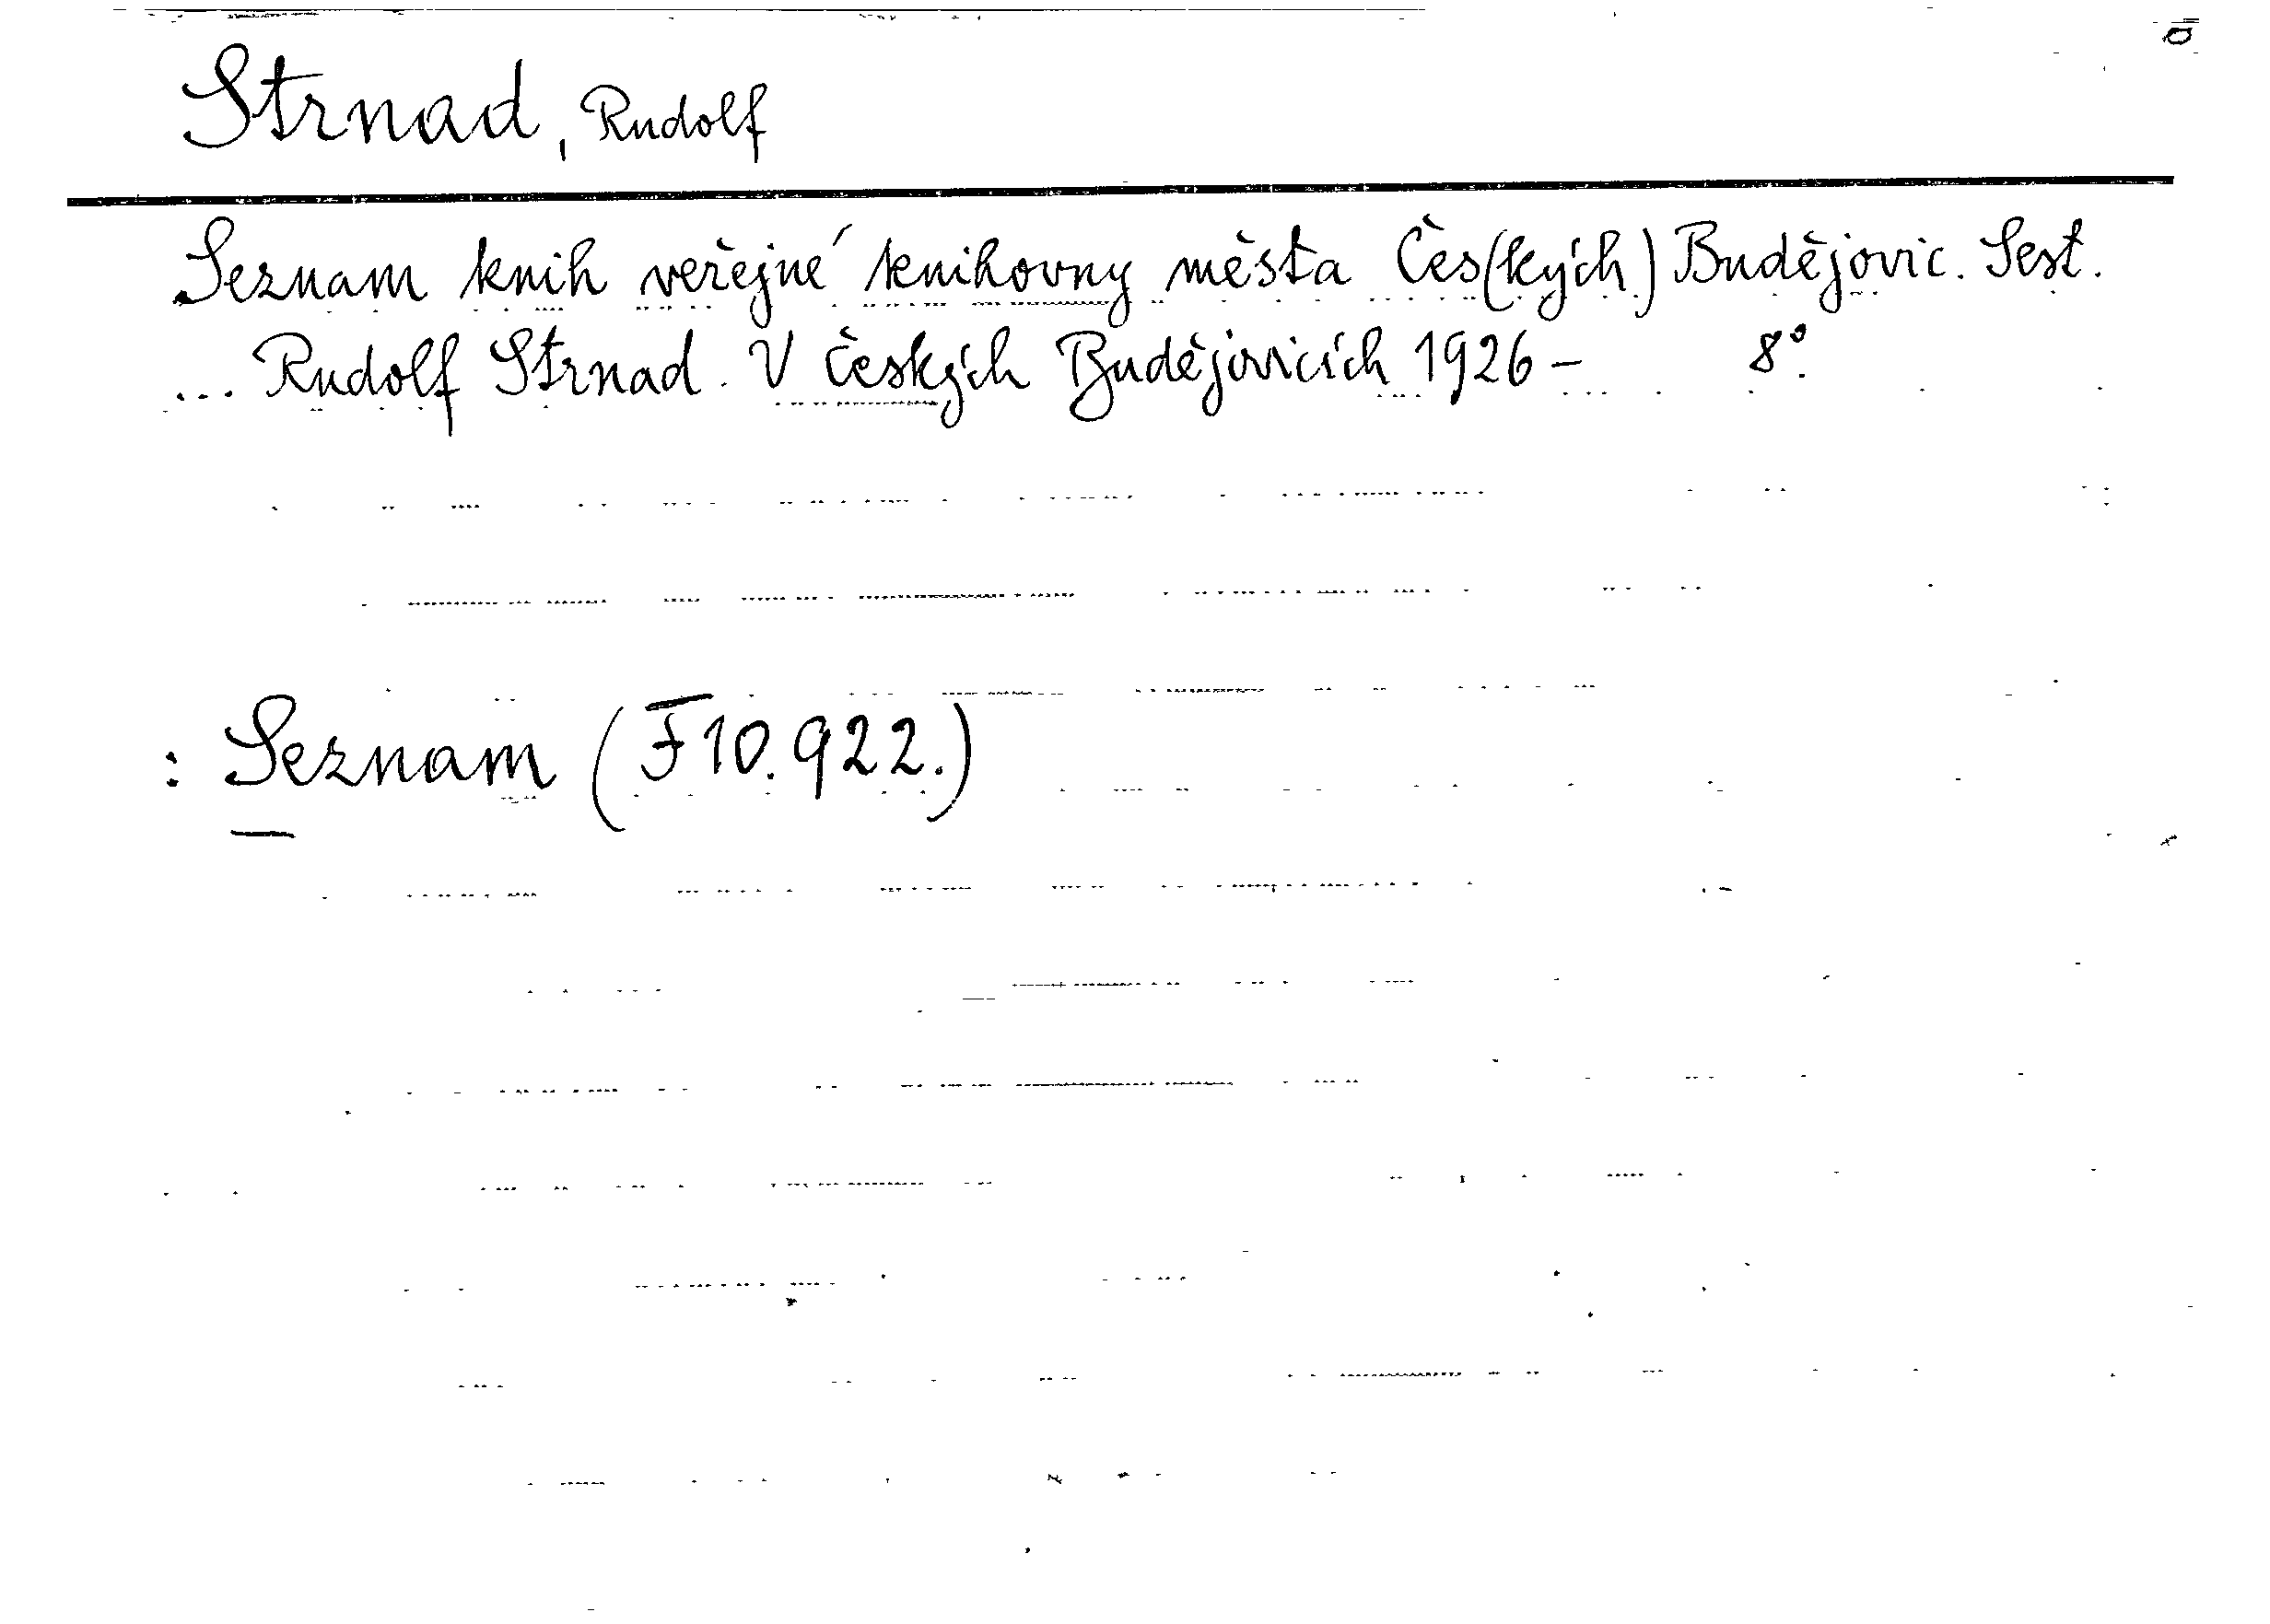 Strnad, Rudolf
Seznam knih veřejné knihovny města Čes(kých) Budějovic. Sest.
... Rudolf Strnad. V Českých Budějovicích 1926 – 8°.
: Seznam (F 10.922.)